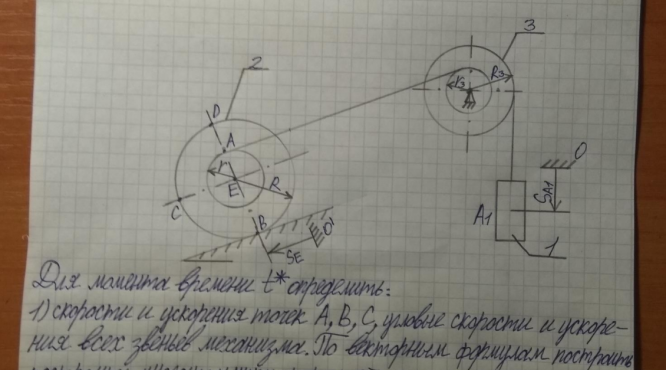 2
3
D
A
r
E
R
C
B
S_E
O'
r3
R3
O
S_A1
A1
1
Для момента времени t* определить:
1) скорости и ускорения точек A, B, C, угловые скорости и ускоре-
ния всех звеньев механизма. По векторным формулам построить